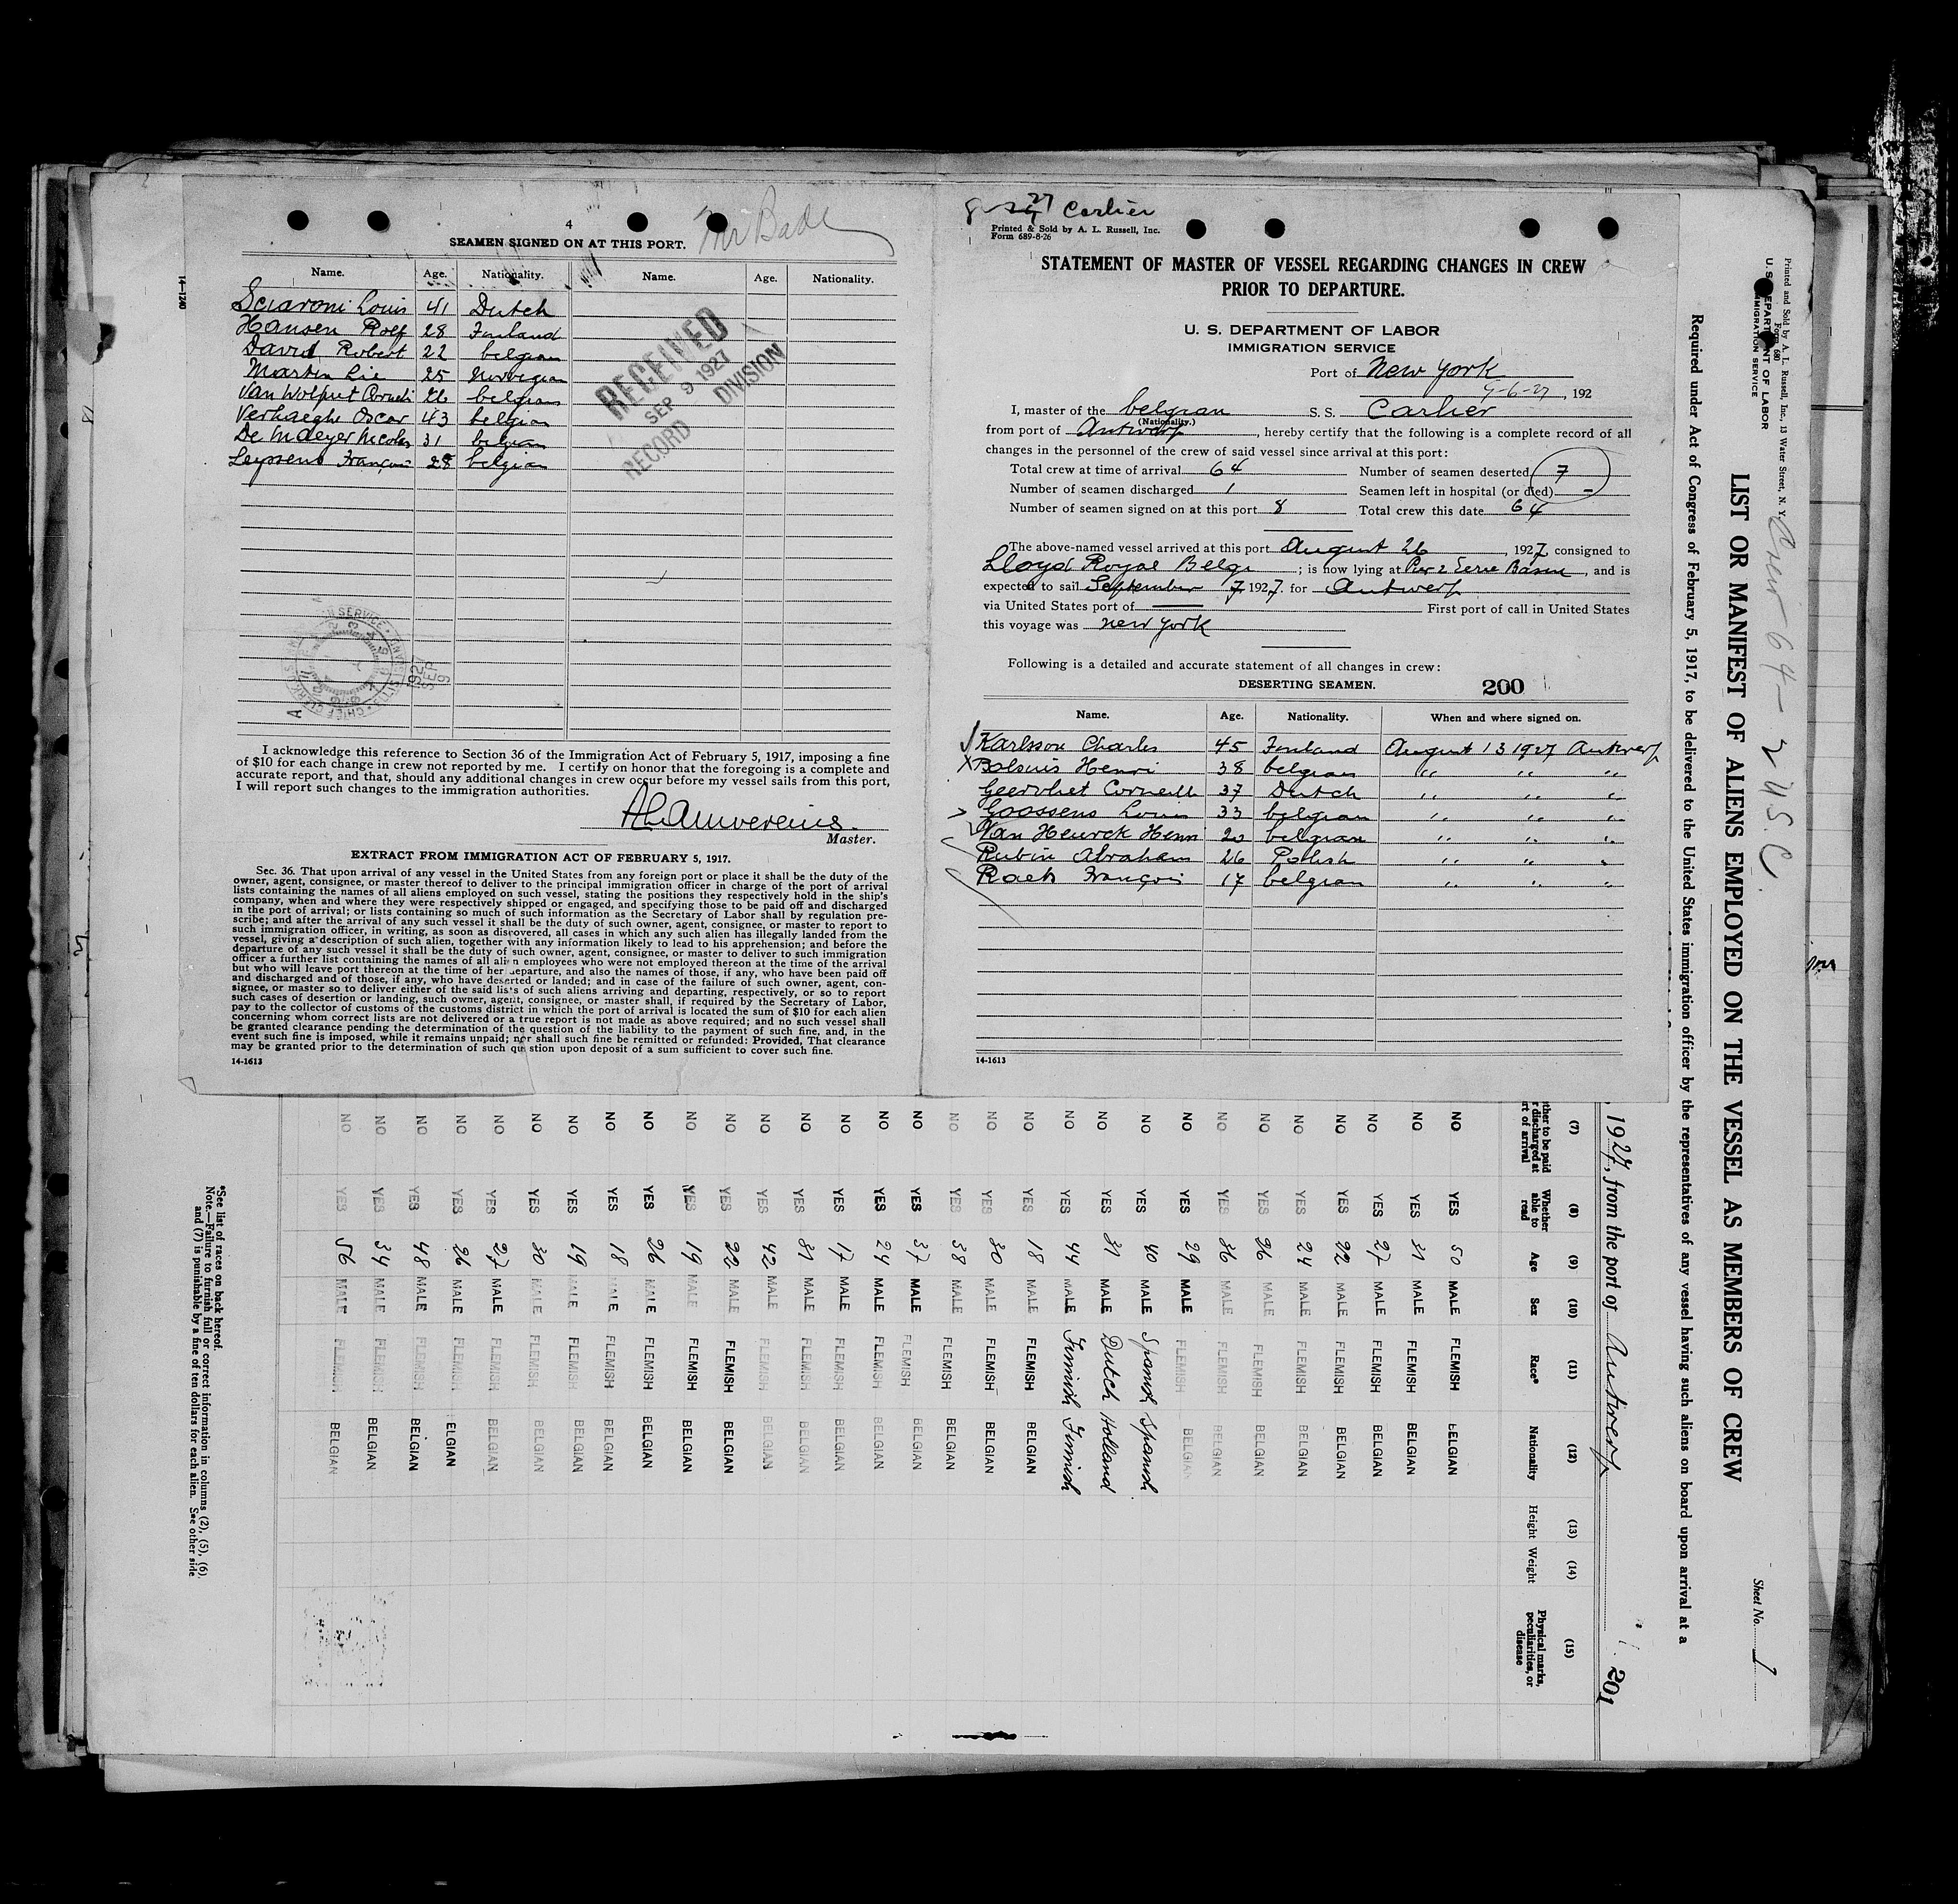 4
Mr Bade
SEAMEN SIGNED ON AT THIS PORT.
Name. Age. Nationality. Name. Age. Nationality.
Sciaroni Louis 41 Dutch
Hansen Rolf 28 Finland
David Robert 22 belgian
Martin Lie 25 Norvegian
Van Wolput Corneli 26 belgian
Verhaeghe Oscar 43 belgian
De Maeyer Nicolas 31 belgian
Leyssens François 28 belgian
RECEIVED
SEP 9 1927
RECORD DIVISION
14-1240
I acknowledge this reference to Section 36 of the Immigration Act of February 5, 1917, imposing a fine
of $10 for each change in crew not reported by me. I certify on honor that the foregoing is a complete and
accurate report, and that, should any additional changes in crew occur before my vessel sails from this port,
I will report such changes to the immigration authorities.
Master.
EXTRACT FROM IMMIGRATION ACT OF FEBRUARY 5, 1917.
Sec. 36. That upon arrival of any vessel in the United States from any foreign port or place it shall be the duty of the
owner, agent, consignee, or master thereof to deliver to the principal immigration officer in charge of the port of arrival
lists containing the names of all aliens employed on such vessel, stating the positions they respectively hold in the ship's
company, when and where they were respectively shipped or engaged, and specifying those to be paid off and discharged
in the port of arrival; or lists containing so much of such information as the Secretary of Labor shall by regulation pre-
scribe; and after the arrival of any such vessel it shall be the duty of such owner, agent, consignee, or master to report to
such immigration officer, in writing, as soon as discovered, all cases in which any such alien has illegally landed from the
vessel, giving a description of such alien, together with any information likely to lead to his apprehension; and before the
departure of any such vessel it shall be the duty of such owner, agent, consignee, or master to deliver to such immigration
officer a further list containing the names of all alien employees who were not employed thereon at the time of the arrival
but who will leave port thereon at the time of her departure, and also the names of those, if any, who have been paid off
and discharged and of those, if any, who have deserted or landed; and in case of the failure of such owner, agent, con-
signee, or master so to deliver either of the said lists of such aliens arriving and departing, respectively, or so to report
such cases of desertion or landing, such owner, agent, consignee, or master shall, if required by the Secretary of Labor,
pay to the collector of customs of the customs district in which the port of arrival is located the sum of $10 for each alien
concerning whom correct lists are not delivered or a true report is not made as above required; and no such vessel shall
be granted clearance pending the determination of the question of the liability to the payment of such fine, and, in the
event such fine is imposed, while it remains unpaid; nor shall such fine be remitted or refunded: Provided, That clearance
may be granted prior to the determination of such question upon deposit of a sum sufficient to cover such fine.
14-1613
27 Carlier
Printed & Sold by A. L. Russell, Inc.
Form 689-8-26
STATEMENT OF MASTER OF VESSEL REGARDING CHANGES IN CREW
PRIOR TO DEPARTURE.
U. S. DEPARTMENT OF LABOR
IMMIGRATION SERVICE
Port of New York
9-6-27, 192
I, master of the belgian S. S. Carlier
(Nationality.)
from port of Antwerp, hereby certify that the following is a complete record of all
changes in the personnel of the crew of said vessel since arrival at this port:
Total crew at time of arrival 64 Number of seamen deserted 7
Number of seamen discharged 1 Seamen left in hospital (or died) -
Number of seamen signed on at this port 8 Total crew this date 64
The above-named vessel arrived at this port August 26, 1927, consigned to
Lloyd Royal Belge; is now lying at Pier 2 Eerie Basin, and is
expected to sail September 7 1927. for Antwerp
via United States port of First port of call in United States
this voyage was new york
Following is a detailed and accurate statement of all changes in crew:
DESERTING SEAMEN. 200
Name. Age. Nationality. When and where signed on.
Karlsson Charles 45 Finland August 13 1927 Antwerp
X Bolsuis Henri 38 belgian " " "
Geervliet Corneill 37 Dutch " " "
Goossens Louis 33 belgian " " "
Van Heurck Henri 20 belgian " " "
Rubin Abraham 26 Polish " " "
Raets François 17 belgian " " "
14-1613
Printed and Sold by A. L. Russell, Inc., 13 Water Street, N. Y.
Form 680
U. S. DEPARTMENT OF LABOR
IMMIGRATION SERVICE
Crew 64 - 2 U.S.C.
Sheet No. 1
LIST OR MANIFEST OF ALIENS EMPLOYED ON THE VESSEL AS MEMBERS OF CREW
Required under Act of Congress of February 5, 1917, to be delivered to the United States immigration officer by the representatives of any vessel having such aliens on board upon arrival at a
, 1927, from the port of Antwerp 201
(7) (8) (9) (10) (11) (12) (13) (14) (15)
ther to be paid r discharged at rt of arrival Whether able to read Age Sex Race* Nationality Height Weight Physical marks, peculiarities, or disease
NO YES 50 MALE FLEMISH BELGIAN
NO YES 31 MALE FLEMISH BELGIAN
NO YES 27 MALE FLEMISH BELGIAN
NO YES 22 MALE FLEMISH BELGIAN
NO YES 24 MALE FLEMISH BELGIAN
NO YES 26 MALE FLEMISH BELGIAN
NO YES 36 MALE FLEMISH BELGIAN
NO YES 29 MALE FLEMISH BELGIAN
NO YES 40 MALE Spanish Spanish
NO YES 31 MALE Dutch Holland
NO YES 44 MALE Finnish Finnish
NO YES 18 MALE FLEMISH BELGIAN
NO YES 30 MALE FLEMISH BELGIAN
NO YES 38 MALE FLEMISH BELGIAN
NO YES 37 MALE FLEMISH BELGIAN
NO YES 24 MALE FLEMISH BELGIAN
NO YES 17 MALE FLEMISH BELGIAN
NO YES 31 MALE FLEMISH BELGIAN
NO YES 42 MALE FLEMISH BELGIAN
NO YES 22 MALE FLEMISH BELGIAN
NO YES 19 MALE FLEMISH BELGIAN
NO YES 26 MALE FLEMISH BELGIAN
NO YES 18 MALE FLEMISH BELGIAN
NO YES 19 MALE FLEMISH BELGIAN
NO YES 30 MALE FLEMISH BELGIAN
NO YES 27 MALE FLEMISH BELGIAN
NO YES 26 MALE FLEMISH ELGIAN
NO YES 48 MALE FLEMISH BELGIAN
NO YES 34 MALE FLEMISH BELGIAN
NO YES 56 MALE FLEMISH BELGIAN
*See list of races on back hereof.
Note.—Failure to furnish full or correct information in columns (2), (5), (6),
and (7) is punishable by a fine of ten dollars for each alien. See other side